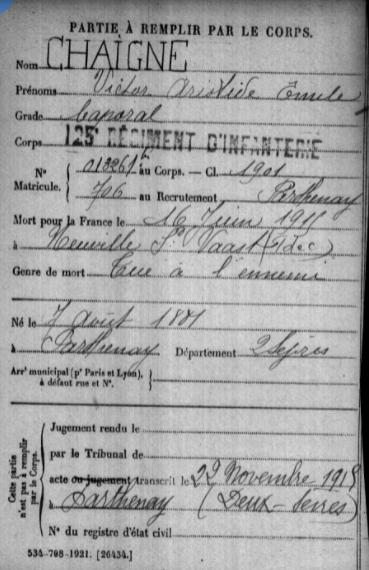 PARTIE À REMPLIR PAR LE CORPS.
Nom CHAÏGNE
Prénoms Victor Aristide Emile
Grade Caporal
Corps 125e RÉGIMENT D'INFANTERIE
N° 013261 au Corps. — Cl. 1901
Matricule. 706 au Recrutement Parthenay
Mort pour la France le 16 Juin 1915
à Neuville St Vaast (P de C)
Genre de mort Tué à l'ennemi
Né le 7 août 1881
à Parthenay Département 2 Sèvres
Arrt municipal (pr Paris et Lyon),
à défaut rue et N°.
Cette partie
n'est pas à remplir
par le Corps.
Jugement rendu le
par le Tribunal de
acte ou jugement transcrit le 22 Novembre 1915
à Parthenay (Deux-Sèvres)
N° du registre d'état civil
534-708-1921. [26434.]